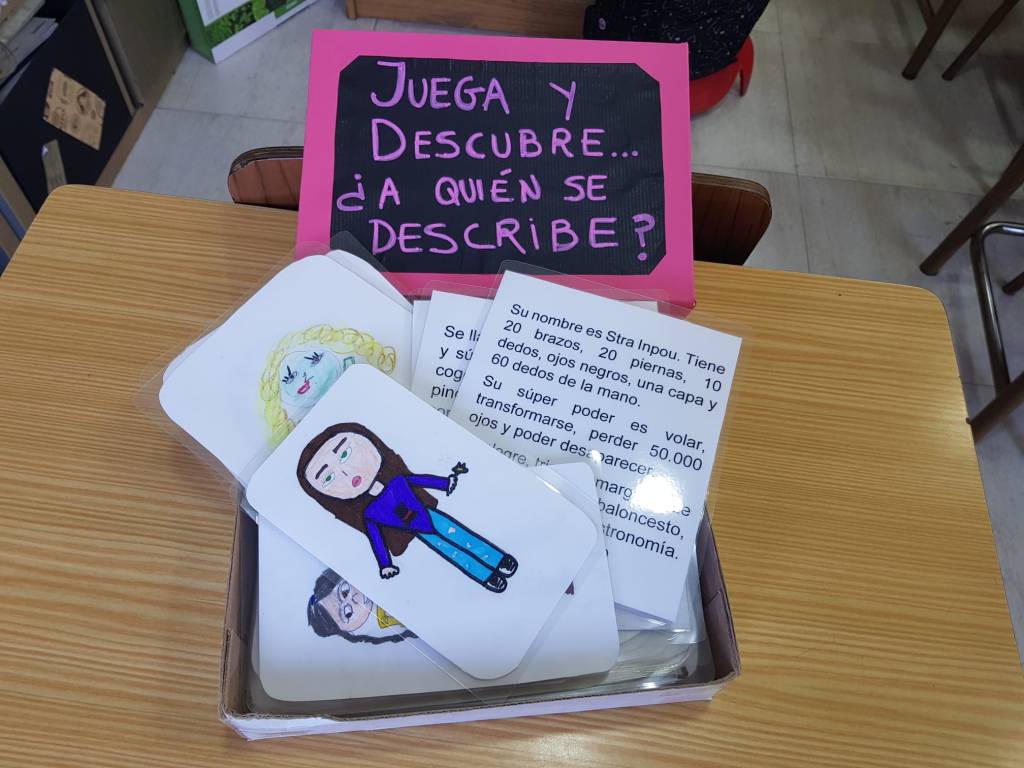 JUEGA Y
DESCUBRE...
¿A QUIÉN SE
DESCRIBE?
Su nombre es Stra Inpou. Tiene
20 brazos, 20 piernas, 10
dedos, ojos negros, una capa y
60 dedos de la mano.
Su súper poder es volar,
transformarse, perder 50.000
ojos y poder desaparecer
baloncesto,
Se
y